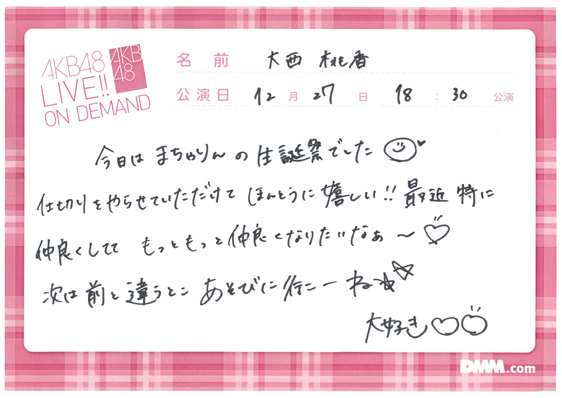 AKB48
LIVE!!
ON DEMAND
AKB
48
名前 大西 桃香
公演日 12月27日 18:30 公演
今日は まちゃりんの生誕祭でした
仕切りをやらせていただけて ほんとうに嬉しい!! 最近 特に
仲良くしてて もっともっと仲良くなりたいなぁ〜♡
次は前と違うとこ あそびに行こーね☆
大好き♡
DMM.com